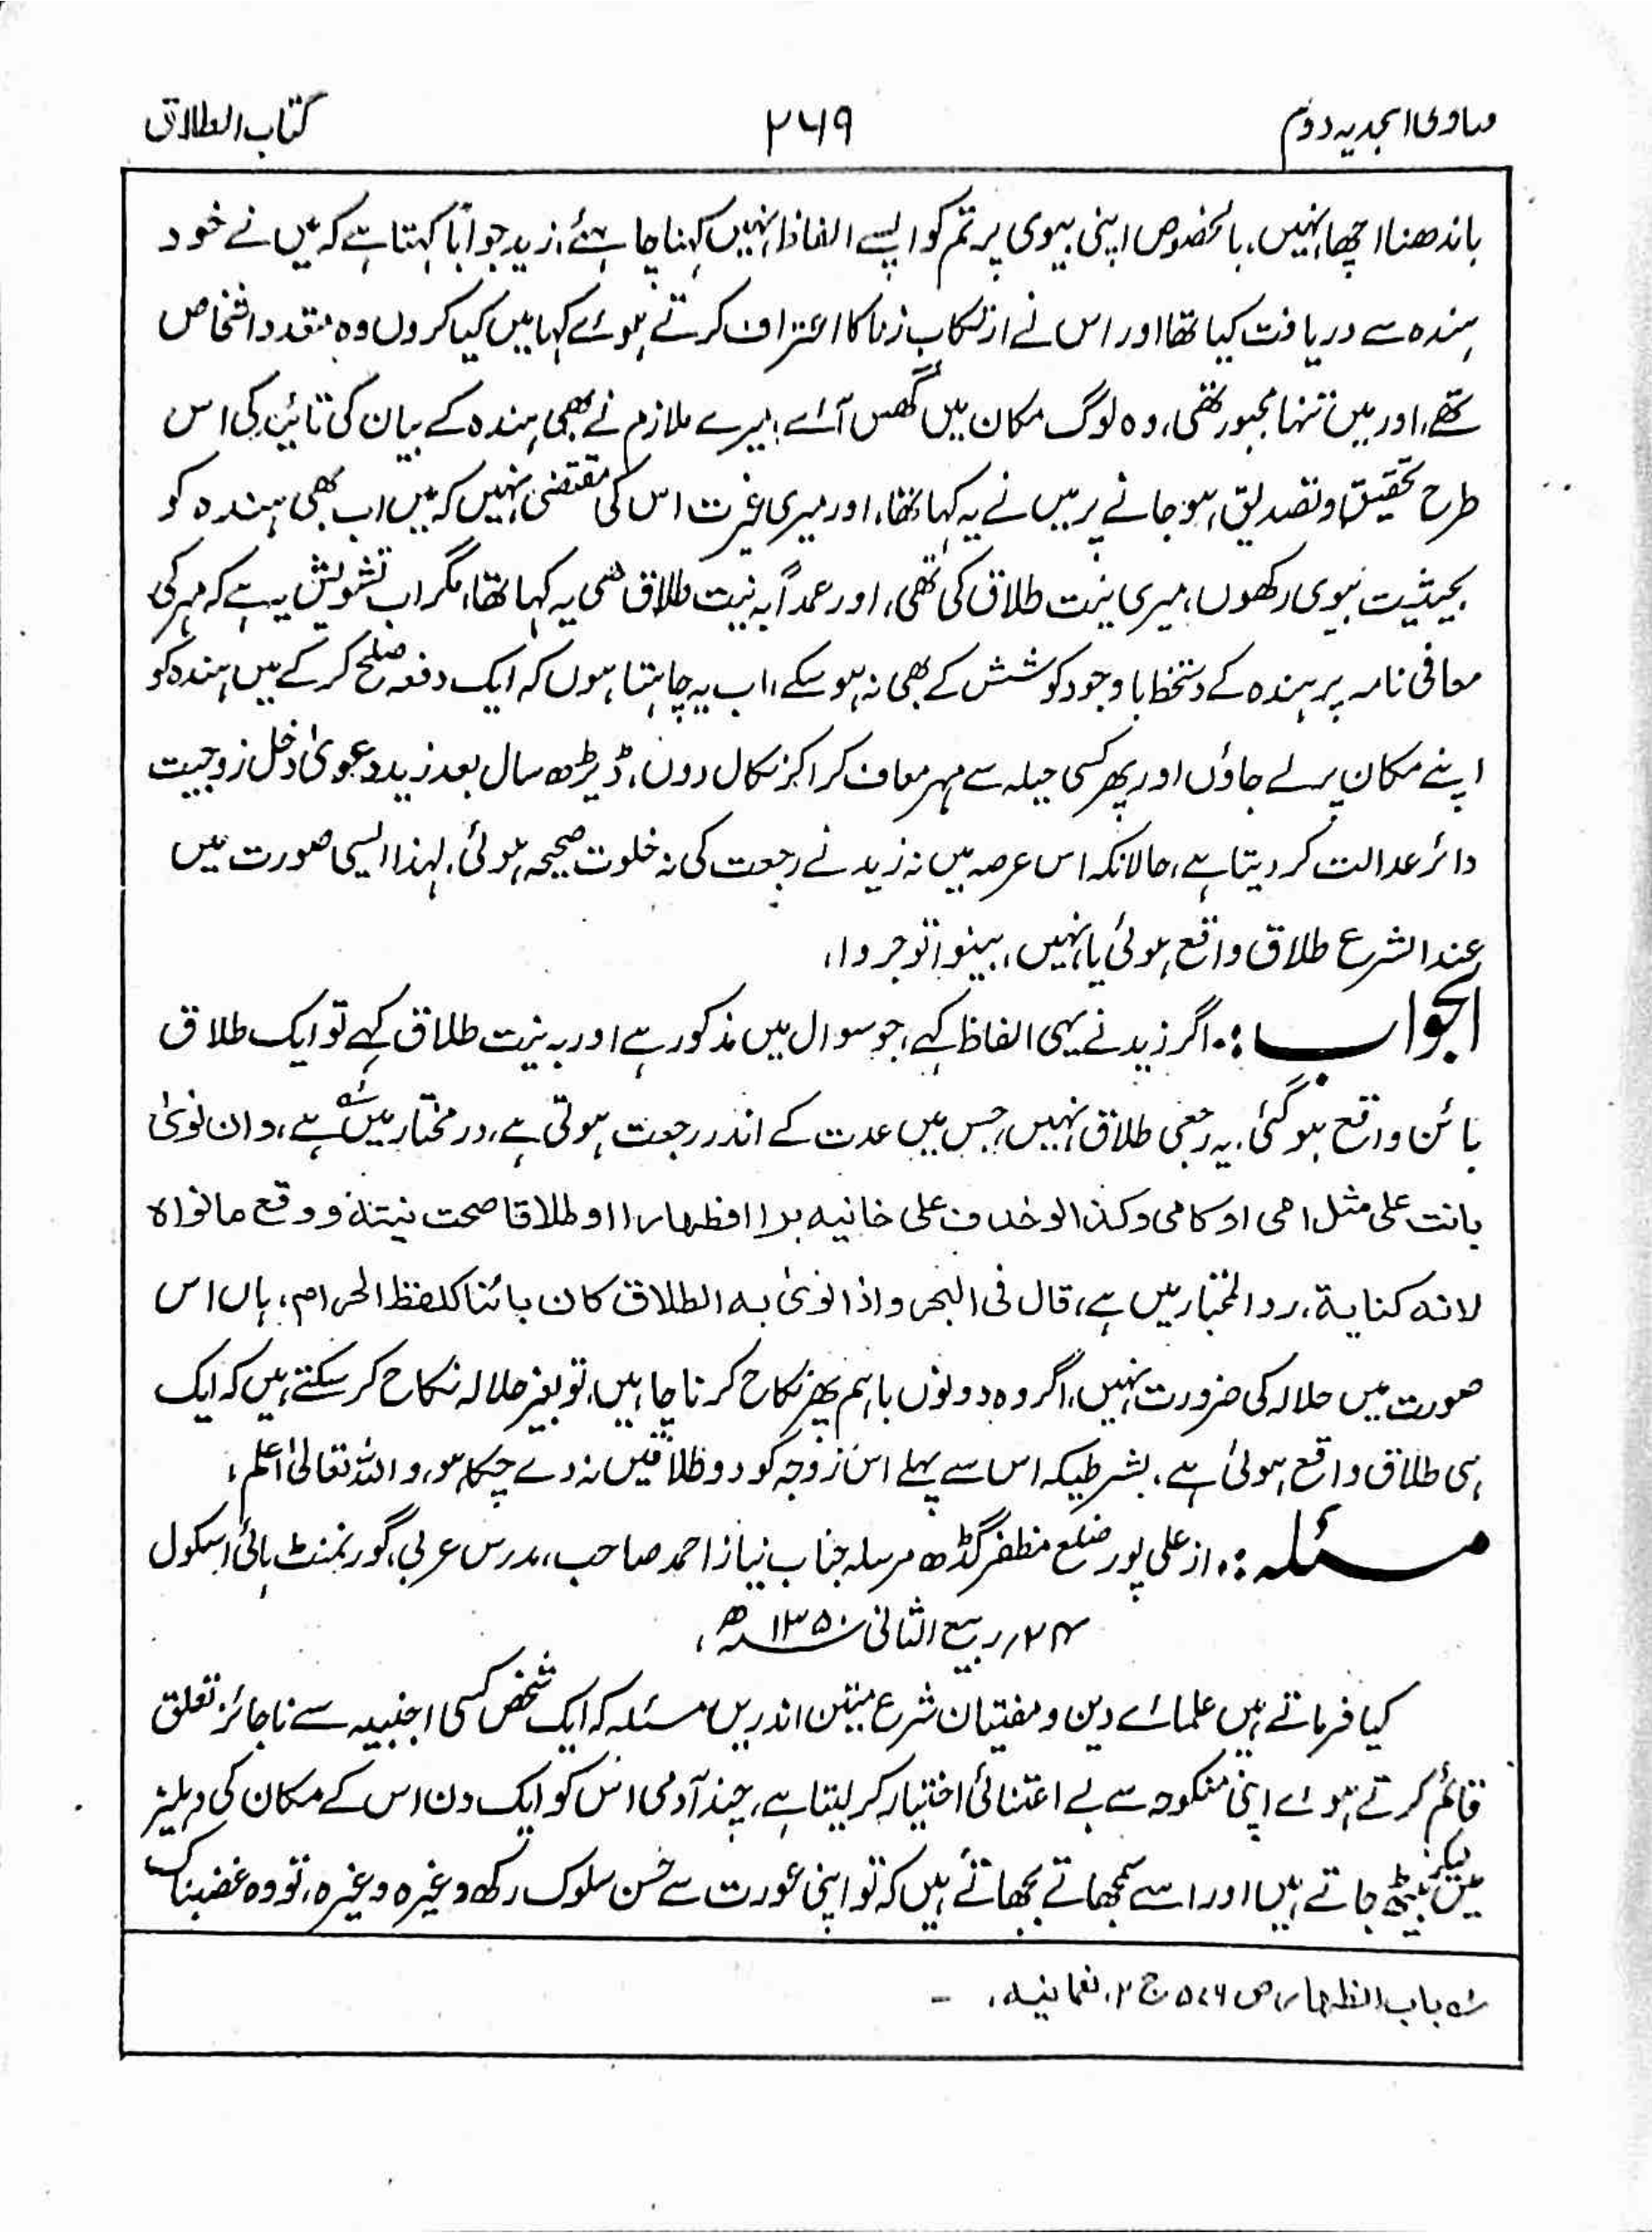 فتاویٰ امجدیہ دوم ۲۶۹ کتاب الطلاق
باندھنا اچھا نہیں، بالخصوص اپنی بیوی پر تم کو ایسے الفاظ نہیں کہنا چاہئے، زید جواباً کہتا ہے کہ میں نے خود
ہندہ سے دریافت کیا تھا اور اس نے ارتکاب زنا کا اعتراف کرتے ہوئے کہا میں کیا کروں وہ متعدد اشخاص
تھے، اور میں تنہا مجبور تھی، وہ لوگ مکان میں گھس آئے، میرے ملازم نے بھی ہندہ کے بیان کی تائید کی اس
طرح تحقیق و تصدیق ہو جانے پر میں نے یہ کہا تھا، اور میری غیرت اس کی مقتضی نہیں کہ میں اب بھی ہندہ کو
بحیثیت بیوی رکھوں، میری نیت طلاق کی تھی، اور عمداً بہ نیت طلاق ہی یہ کہا تھا، مگر اب تشویش یہ ہے کہ مہر کی
معافی نامہ پر ہندہ کے دستخط باوجود کوشش کے بھی نہ ہو سکے، اب یہ چاہتا ہوں کہ ایک دفعہ صلح کر کے میں ہندہ کو
اپنے مکان پر لے جاؤں اور پھر کسی حیلہ سے مہر معاف کرا کر نکال دوں، ڈیڑھ سال بعد زید دعویٰ دخل زوجیت
دائر عدالت کر دیتا ہے، حالانکہ اس عرصہ میں نہ زید نے رجعت کی نہ خلوت صحیحہ ہوئی، لہذا ایسی صورت میں
عند الشرع طلاق واقع ہوئی یا نہیں، بینوا توجروا،
الجواب :۔ اگر زید نے یہی الفاظ کہے، جو سوال میں مذکور ہے اور بہ نیت طلاق کہے تو ایک طلاق
بائن واقع ہو گئی، یہ رجعی طلاق نہیں، جس میں عدت کے اندر رجعت ہوتی ہے، در مختار میں ؎ ہے، وان نویٰ
بانت علی مثل امی او کامی وکذا لوخدف علی خانیه برا اوظہارا او طلاقا صحت نیته ووقع مانواہ
لانه کنایة، رد المختار میں ہے، قال فی البحر واذا نویٰ به الطلاق کان بائنا کلفظ الحرام، ہاں اس
صورت میں حلالہ کی ضرورت نہیں، اگر وہ دونوں باہم پھر نکاح کرنا چاہیں، تو بغیر حلالہ نکاح کر سکتے ہیں کہ ایک
ہی طلاق واقع ہوئی ہے، بشرطیکہ اس سے پہلے اس زوجہ کو دو طلاقیں نہ دے چکا ہو، واللہ تعالیٰ اعلم،
مسئلہ :۔ از علی پور ضلع مظفر گڈھ مرسلہ جناب نیاز احمد صاحب، مدرس عربی، گورنمنٹ ہائی اسکول
۲۴؍ ربیع الثانی ۱۳۵۰ھ،
کیا فرماتے ہیں علمائے دین و مفتیان شرع متین اندریں مسئلہ کہ ایک شخص کسی اجنبیہ سے ناجائز تعلق
قائم کرتے ہوئے اپنی منکوحہ سے بے اعتنائی اختیار کر لیتا ہے، چند آدمی اس کو ایک دن اس کے مکان کی دہلیز
میں لیکر بیٹھ جاتے ہیں اور اسے سمجھاتے بجھاتے ہیں کہ تو اپنی عورت سے حسن سلوک رکھ وغیرہ وغیرہ، تو وہ غضبناک
؎ باب الظہار ص ۵۷۶ ج ۲، نعمانیہ، ۔